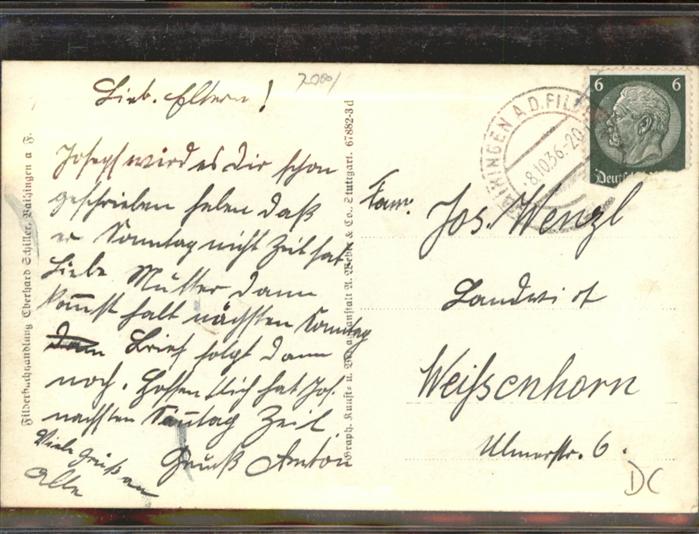 Lieb. Eltern!
Josef wird es Dir schon
geschrieben haben daß
er Sonntag nicht Zeit hat
Liebe Mutter dann
kommst halt nächsten Sonntag
Brief folgt dann
noch. Hoffentlich hat Jos.
nächsten Sonntag Zeit.
Gruß Anton
Viele Grüße an
Alle
Filderbuchhandlung Eberhard Schiller, Vaihingen a F.
Graph. Kunst- u. Verlagsanstalt A. Weber & Co., Stuttgart. 67882-3d
VAIHINGEN A.D.FILD
8.10.36.-20
6 6
Deutsch
Fam.
Jos. Wenzl
Landwirt
Weißenhorn
Ulmerstr. 6.
DC